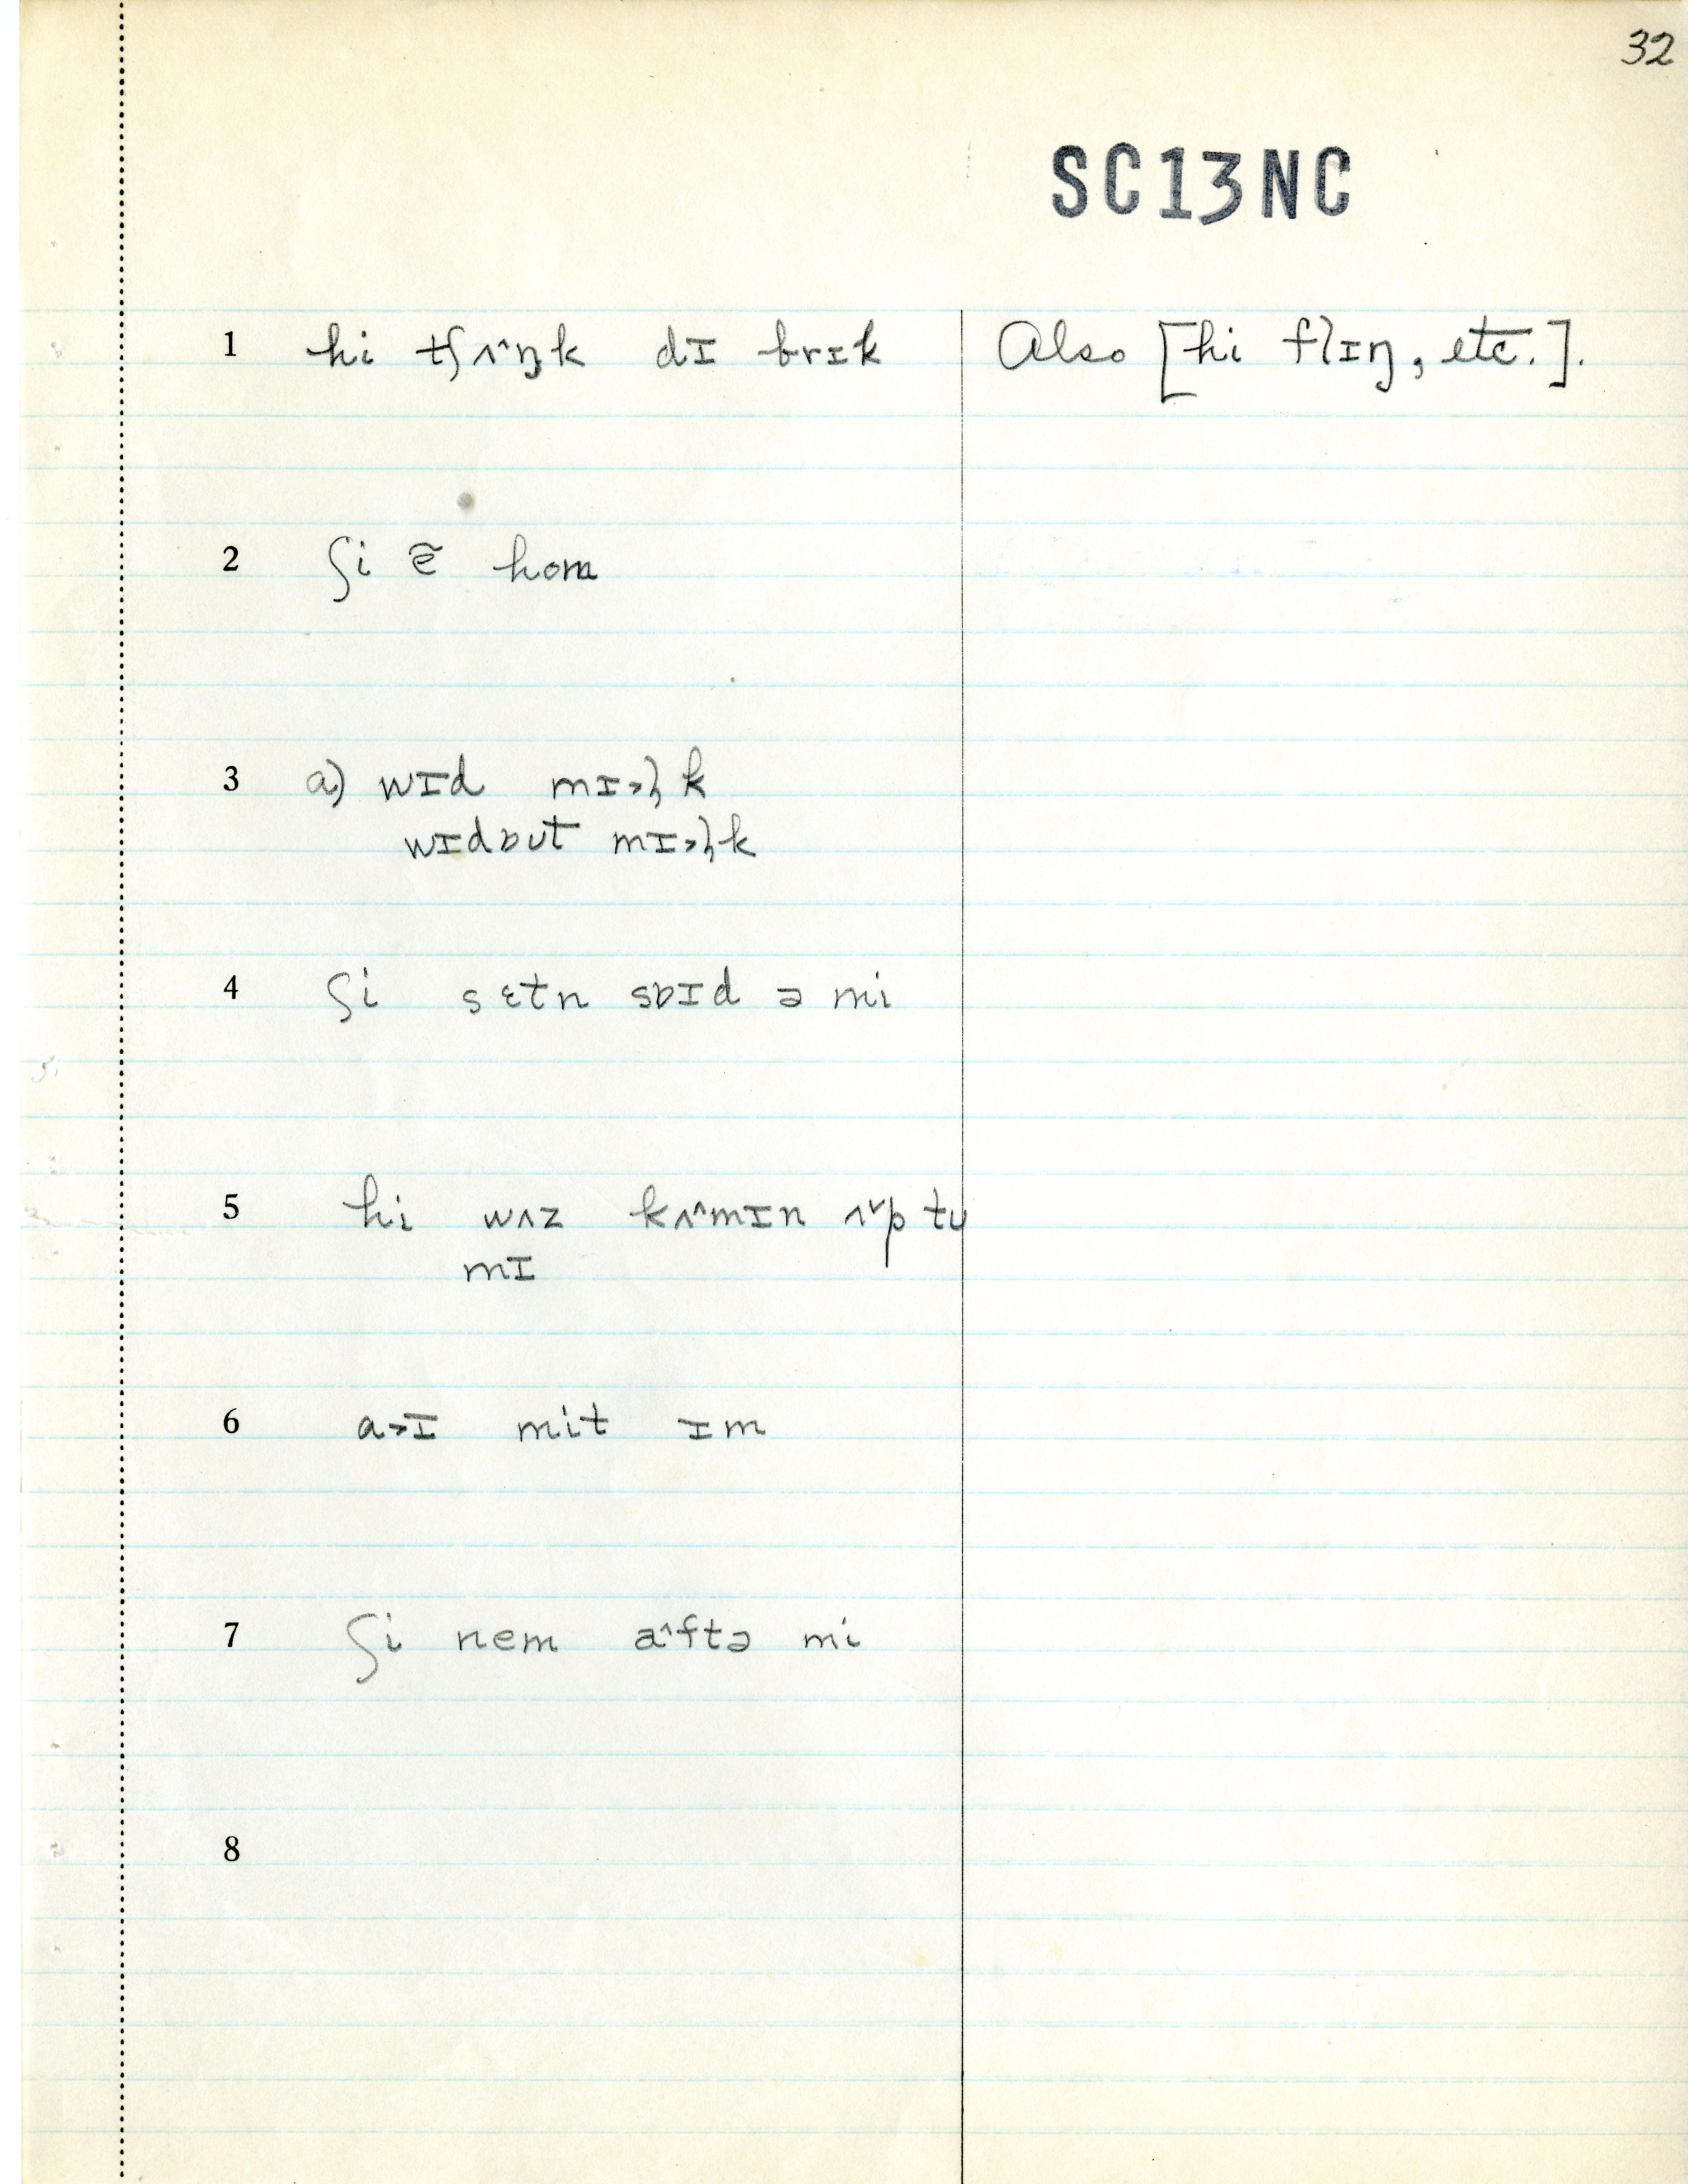 32
SC13NC
1 hi tʃʌ˄ŋk dɪ brɪk Also [hi flɪŋ, etc.].
2 ʃi ẽ hom
3 a) wɪd mɪ˃ɫk
wɪdɒʊt mɪ˃ɫk
4 ʃi sɛtn sɒɪd ə mi
5 hi wʌz kʌ˄mɪn ʌ˅p tʊ
mɪ
6 a˃ɪ mit ɪm
7 ʃi nem a˄ftə mi
8